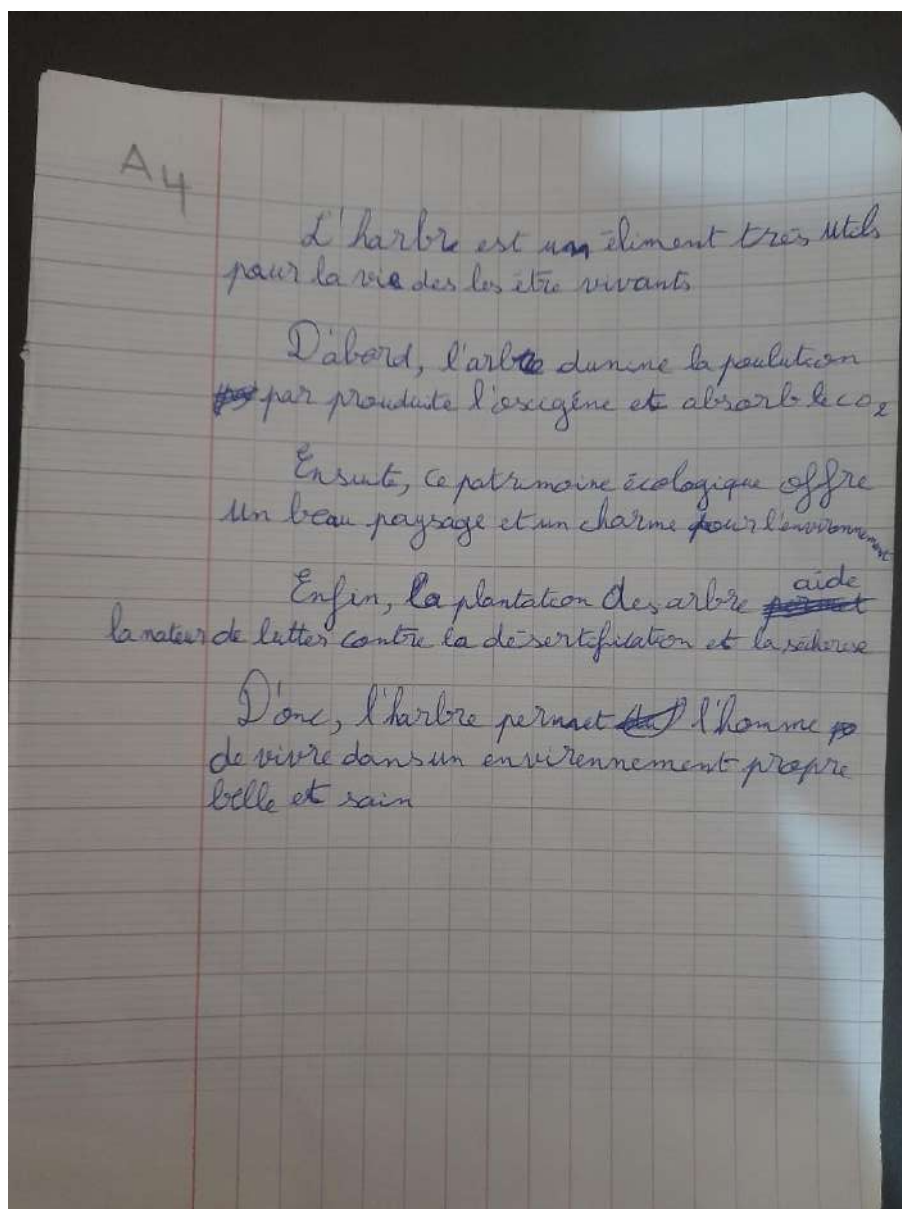 A4
L'harbre est un éliment trés utils
pour la vie des les être vivants
D'abord, l'arbre dumine la poulution
par prouduite l'oxigéne et absorb le CO2
Ensuite, ce patrimoine écologique offre
un beau paysage et un charme pour l'environnement
Enfin, la plantation des arbre aide
la nateur de lutter contre la désertification et la sécherese
D'onc, l'harbre permet l'homme
de vivre dans un envirennement propre
belle et sain